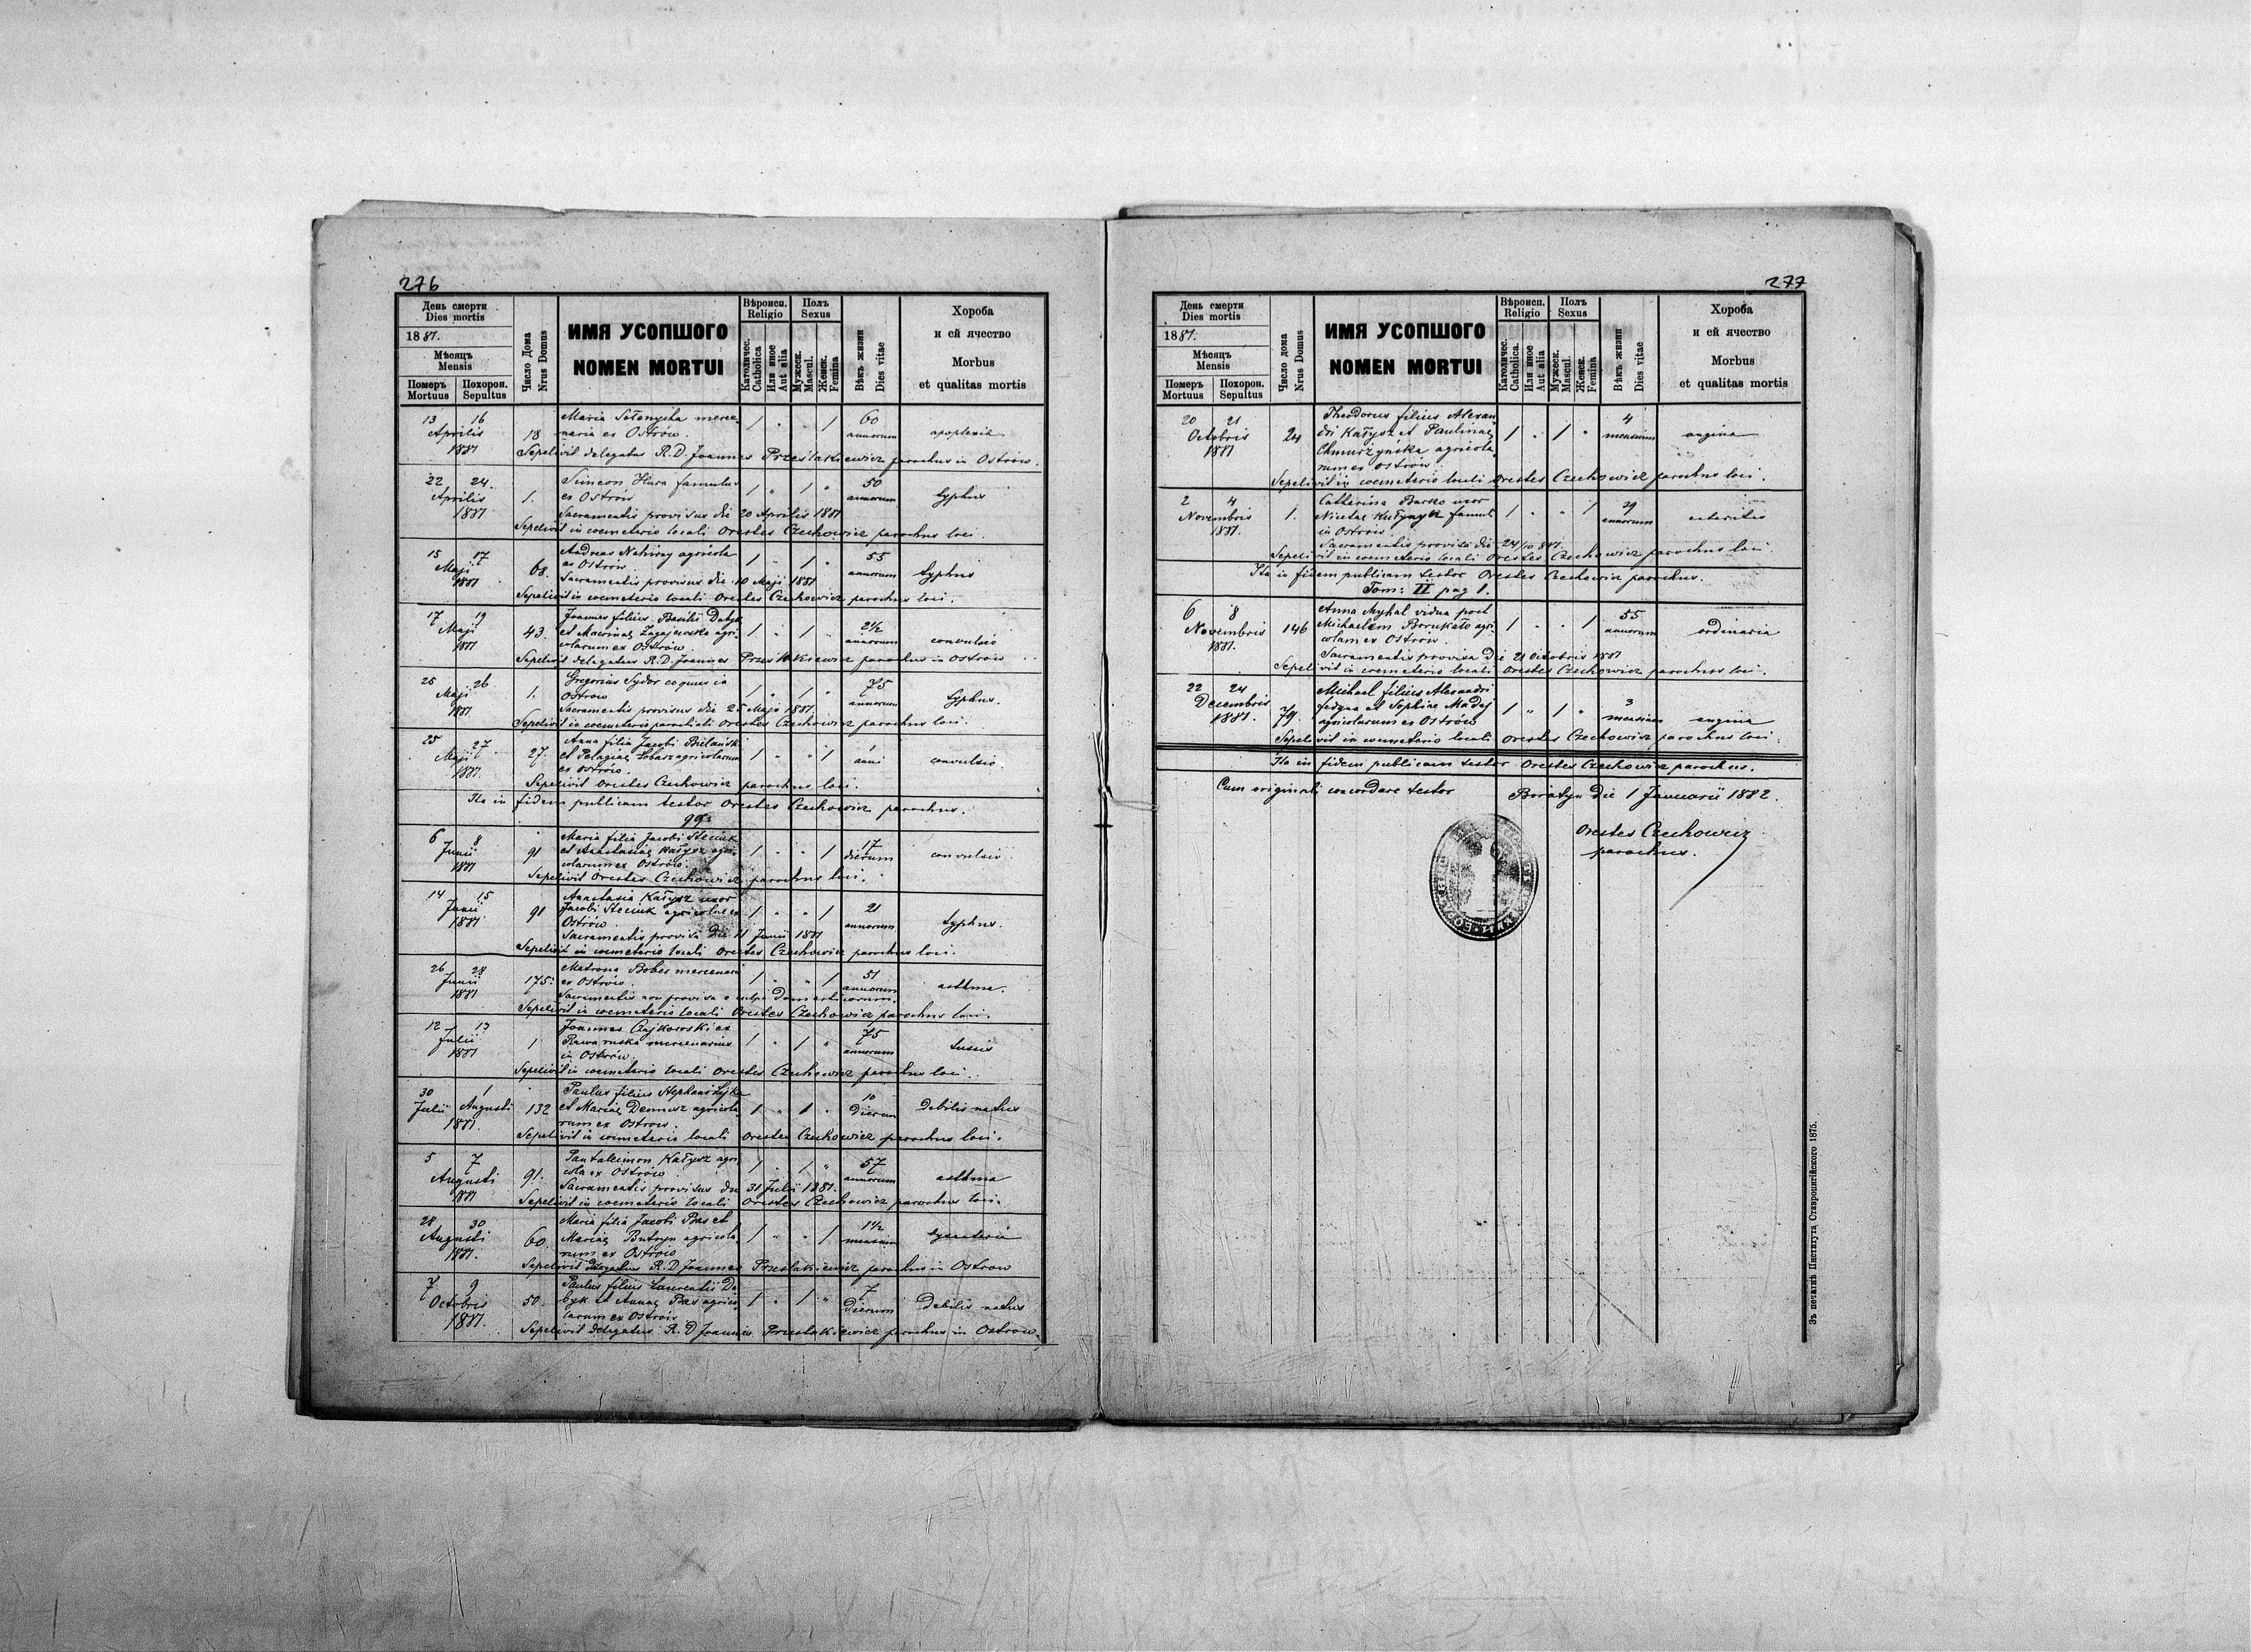 276
День смерти
Dies mortis
1881.
Мѣсяцъ
Mensis
Померъ Похорон.
Mortuus Sepultus
Число Дома
Nrus Domus
ИМЯ УСОПШОГО
NOMEN MORTUI
Вѣроисп.
Religio
Католичес.
Catholica
Или иное
Aut alia
Полъ
Sexus
Мужеск.
Mascul.
Женск.
Femina
Вѣкъ жизни
Dies vitae
Хороба
и ей ячество
Morbus
et qualitas mortis
13 16 Maria merce-
Aprilis 18 naria ex Ostrów. 1 " " 1 60 annorum apoplexia
1881 Sepelivit delegatus R. D. Joannes parochus in Ostrów.
22 24 Simeon Hura famulus
Aprilis 1. ex Ostrów 1 " 1 " 50 annorum typhus
1881 Sacramentis provisus die 20 Aprilis 1881
Sepelivit in coemeterio locali Orestes Czechowicz parochus loci.
15 17 Andreas Nahirny agricola
Maji 68. ex Ostrów. 1 " 1 " 55 annorum typhus
1881 Sacramentis provisus die 10 Maji 1881
Sepelivit in coemeterio locali Orestes Czechowicz parochus loci.
17 19 Joannes filius Basilii
Maji 43. et Macrinae agri- 1 " 1 " 2½ annorum convulsio
1881 colarum ex Ostrów.
Sepelivit delegatus R. D. Joannes parochus in Ostrów
25 26 Gregorius Sydor coquus in
Maji 1. Ostrow 1 " 1 " 75 annorum typhus.
1881. Sacramentis provisus die 25 Maji 1881.
Sepelivit in coemeterio parochiali Orestes Czechowicz parochus loci.
25 27 Anna filia Jacobi Bielański
Maji 27. et Pelagiae agricolarum 1 " " 1 1 anni convulsio.
1881. ex Ostrów.
Sepelivit Orestes Czechowicz parochus loci.
Ita in fidem publicam testor Orestes Czechowicz parochus.
99.
6 8 Maria filia Jacobi Steciuk
Junii 91 et Anastasiae Kałysz agri- 1 " " 1 17 dierum convulsio.
1881 colarum ex Ostrów.
Sepelivit Orestes Czechowicz parochus loci.
14 15 Anastasia Kałysz uxor
Junii 91 Jacobi Steciuk agricolae ex 1 " " 1 21 annorum typhus.
1881. Ostrów.
Sacramentis provisa die 11 Junii 1881
Sepelivit in coemeterio locali Orestes Czechowicz parochus loci.
26 28 Matrona Bobes mercenaria
Junii 175. ex Ostrów. 1 " " 1 51 annorum asthma.
1881 Sacramentis non provisa e culpa domesticorum.
Sepelivit in coemeterio locali Orestes Czechowicz parochus loci.
12 13 Joannes Czajkowski ex
Julii 1 Rawa ruska mercenarius 1 " 1 " 75 annorum tussis
1881 in Ostrów.
Sepelivit in coemeterio locali Orestes Czechowicz parochus loci.
30 1 Paulus filius Stephani
Julii Augusti 132 et Mariae agricola- 1 " 1 " 10 dierum debilis natus
1881. rum ex Ostrow.
Sepelivit in coemeterio locali Orestes Czechowicz parochus loci.
5 7 Pantaleimon Kałysz agri-
Augusti 91. cola ex Ostrów 1 " 1 " 57 annorum asthma
1881 Sacramentis provisus die 31 Julii 1881.
Sepelivit in coemeterio locali Orestes Czechowicz parochus loci.
28 30 Maria filia Jacobi Bas et
Augusti 60. Mariae Butryn agricola- 1 " " 1 1½ mensium dysenteria
1881. rum ex Ostrów
Sepelivit delegatus R. D. Joannes parochus in Ostrow
7 9 Paulus filius Laurentii Da-
Octobris 50. byk et Annae Bas agrico- 1 " 1 " 7 dierum debilis natus
1881. larum ex Ostrów
Sepelivit delegatus R. D. Joannes parochus in Ostrow.
277
День смерти
Dies mortis
1881.
Мѣсяцъ
Mensis
Померъ Похорон.
Mortuus Sepultus
Число дома
Nrus Domus
ИМЯ УСОПШОГО
NOMEN MORTUI
Вѣроисп.
Religio
Католичес.
Catholica.
Или иное
Aut alia
Полъ
Sexus
Мужеск.
Mascul.
Женск.
Femina
Вѣкъ жизни
Dies vitae
Хороба
и ей ячество
Morbus
et qualitas mortis
20 21 Theodorus filius Alexan-
Octobris 24 dri Kałysz et Paulinae 1 " 1 " 4 mensium angina
1881 Chmurzyńska agricola-
rum ex Ostrów
Sepelivit in coemeterio locali Orestes Czechowicz parochus loci.
2 4 Catharina Burko uxor
Novembris 1. Nicetae famuli 1 " " 1 39 annorum enteritis
1881. in Ostrów
Sacramentis provisa die 24/10 881.
Sepelivit in coemeterio locali Orestes Czechowicz parochus loci.
Ita in fidem publicam testor Orestes Czechowicz parochus.
Tom: II pag 1.
6 8 Anna Myhal vidua post
Novembris 146 Michaelem agri- 1 " " 1 55 annorum ordinaria
1881. colam ex Ostrów.
Sacramentis provisa die 21 Octobris 1881
Sepelivit in coemeterio locali Orestes Czechowicz parochus loci.
22 24 Michael filius Alexandri
Decembris 79. Fedyna et Sophiae Madej 1 " 1 " 3 mensium angina
1881. agricolarum ex Ostrów
Sepelivit in coemeterio locali Orestes Czechowicz parochus loci.
Ita in fidem publicam testor Orestes Czechowicz parochus.
Cum originali concordare testor Boratyn die 1 Januarii 1882.
Orestes Czechowicz
parochus.
Зъ печатнѣ Института Ставропигійского 1875.